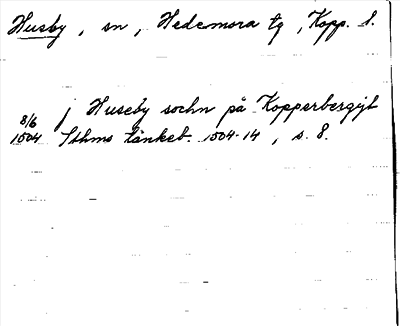 Husby, sn, Hedemora tg, Kopp. l.
j Huseby sochn på Kopperbergit
8/6
1504 Sthms tänkeb. 1504-14, s. 8.